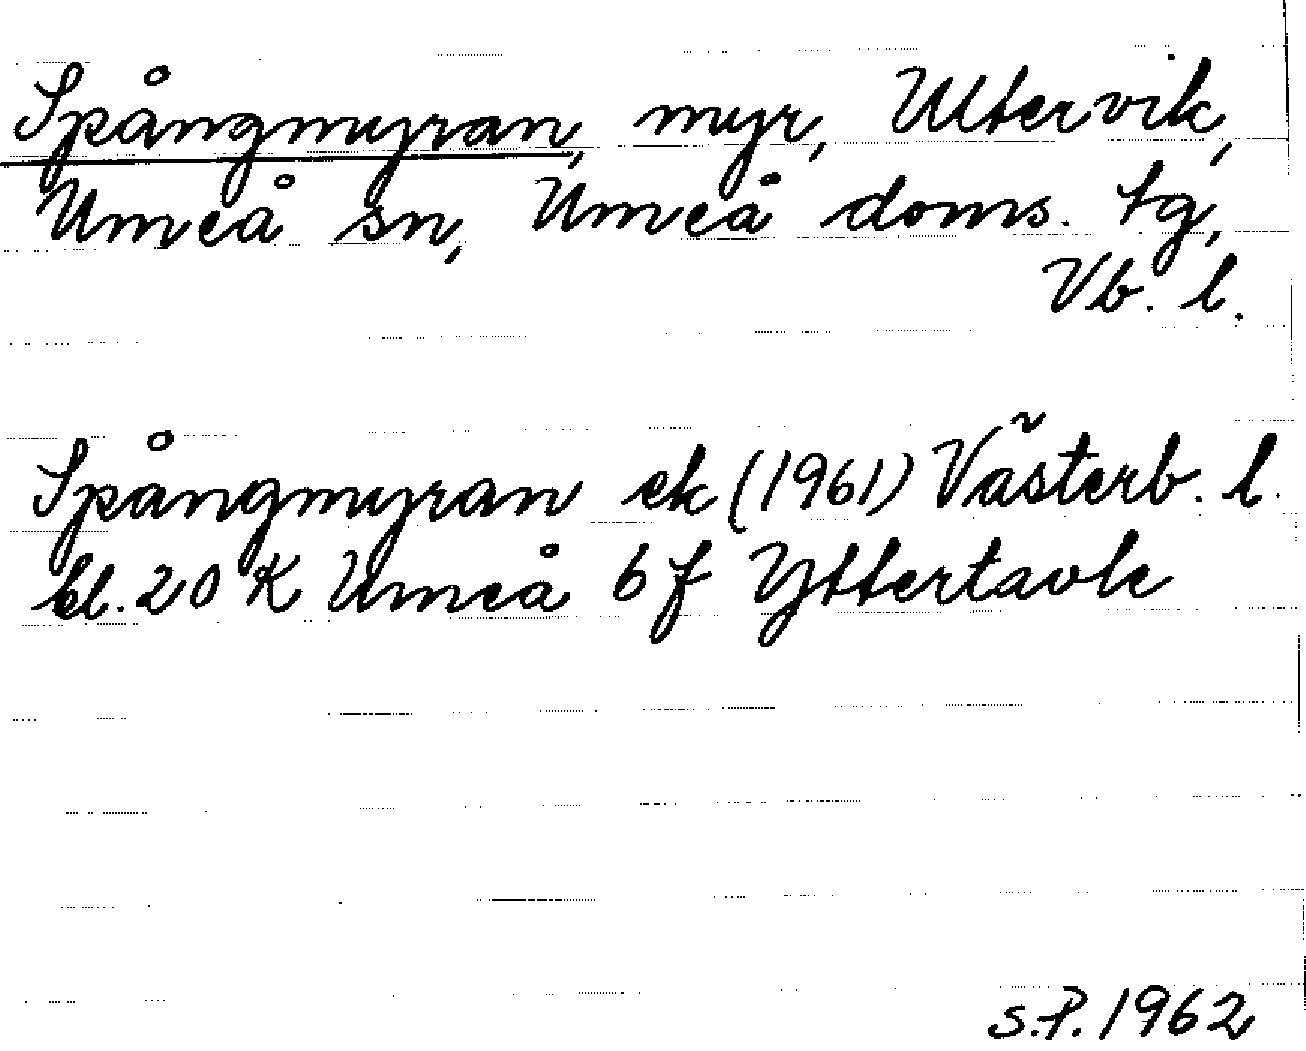 Spångmyran, myr, Ultervik,
Umeå sn, Umeå doms. tg,
Vb. l.
Spångmyran ek (1961) Västerb. l.
bl. 20 K Umeå 6 f Yttertavle
S.P. 1962